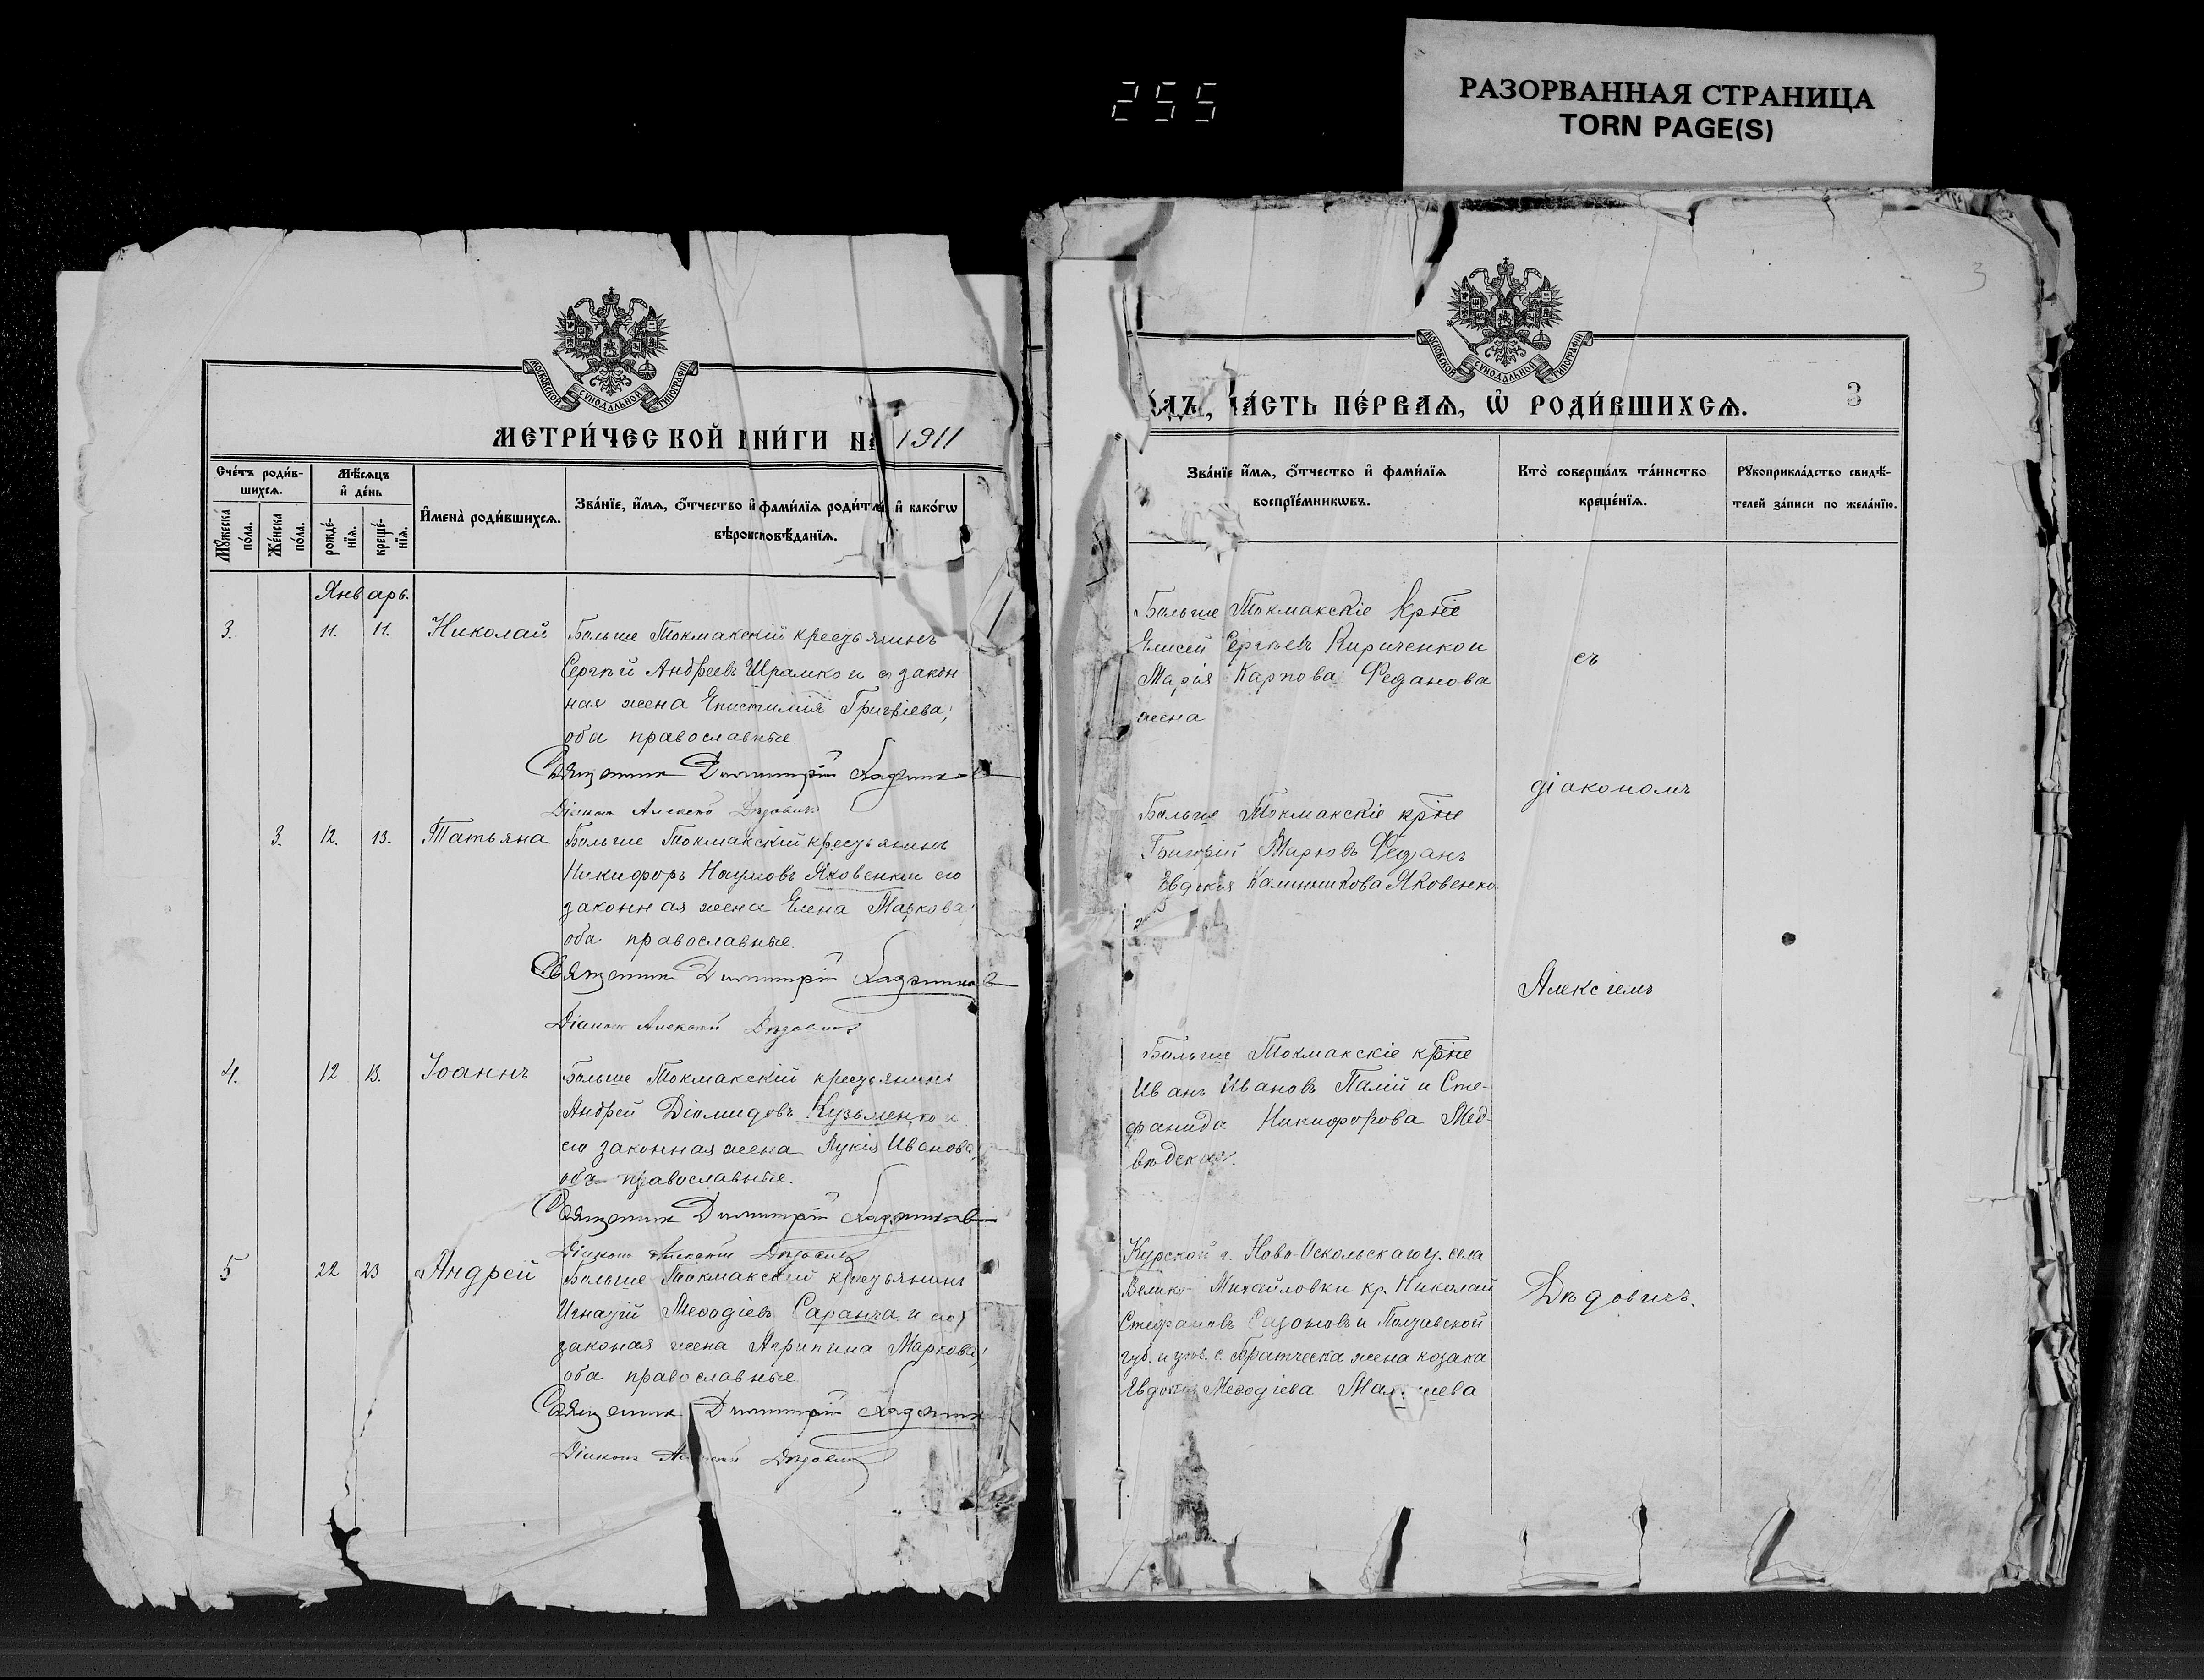 255
РАЗОРВАННАЯ СТРАНИЦА
TORN PAGE(S)
3
МОСКОВСКОЙ СѴНОДАЛЬНОЙ ТИПОГРАФІИ
МЕТРИ́ЧЕСКОЙ КНИ́ГИ НА 1911
Сче́тъ роди́вшихсѧ.
Мꙋ́жеска по́ла.
Же́нска по́ла.
Мѣ́сѧцъ и҆ де́нь
рожде́нїѧ.
креще́нїѧ.
И҆мена̀ роди́вшихсѧ.
Зва́нїе, и҆́мѧ, ѻ҆́тчество и҆ фами́лїѧ роди́телей и҆ како́гѡ
вѣроисповѣ́данїѧ.
Январь.
3. 11. 11. Николай
Больше Токмакскій крестьянинъ
Сергѣй Андреевъ Шрамко и его закон-
ная жена Епистимія Григоріева,
оба православные
Священник Димитрій
Діаконъ Алексѣй Дѣдовичъ
3. 12. 13. Татьяна
Больше Токмакскій крестьянинъ
Никифоръ Наумовъ Яковенко и его
законная жена Елена Маркова
оба православные.
Священник Димитрій
Діаконъ Алексѣй Дѣдовичъ
4. 12 13. Іоаннъ
Больше Токмакскій крестьянинъ
Андрей Діомидовъ Кузьменко и
его законная жена Лукія Иванова,
оба православные.
Священник Димитрій
Діаконъ Алексѣй Дѣдовичъ
5 22 23 Андрей
Больше Токмакскій крестьянинъ
Игнатій Меѳодіевъ Саранча и его
законая жена Агрипина Маркова,
оба православные
Священник Димитрій
Діаконъ Дѣдовичъ
МОСКОВСКОЙ СѴНОДАЛЬНОЙ ТИПОГРАФІИ
ЧА́СТЬ ПЕ́РВАѦ, Ѡ҆ РОДИ́ВШИХСѦ.
3
Зва́нїе и҆́мѧ, ѻ҆́тчество и҆ фами́лїѧ
воспрїе́мникѡвъ.
Кто̀ соверша́лъ та́инство
креще́нїѧ.
Рꙋкоприкла́дство свидѣ́-
телей за́писи по жела́нїю.
Больше Токмакскіе крне
Елисей Сергѣевъ Кириченко и
Марія Карпова Феданова
жена
съ
діакономъ
Больше Токмакскіе крне
Григорій Марковъ Феданъ
Евдокія Калинникова Яковенко
Алексіемъ
Больше Токмакскіе крне
Иванъ Ивановъ Палій и Сте-
фанида Никифорова Мед-
вѣдская.
Курской г. Ново-Оскольскаго у. села
Велико-Михайловки кр. Николай
Стефановъ Сазоновъ и Полтавской
губ. и уѣз. с. жена козака
Евдокія Меѳодіева
Дѣдовичъ.